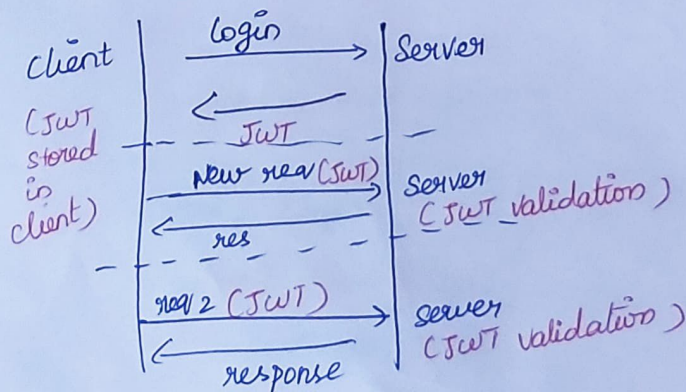 Login
Client
Server
JWT
(JWT
stored
in
client)
New req (JWT)
Server
(JWT validation)
res
req 2 (JWT)
Server
(JWT validation)
response